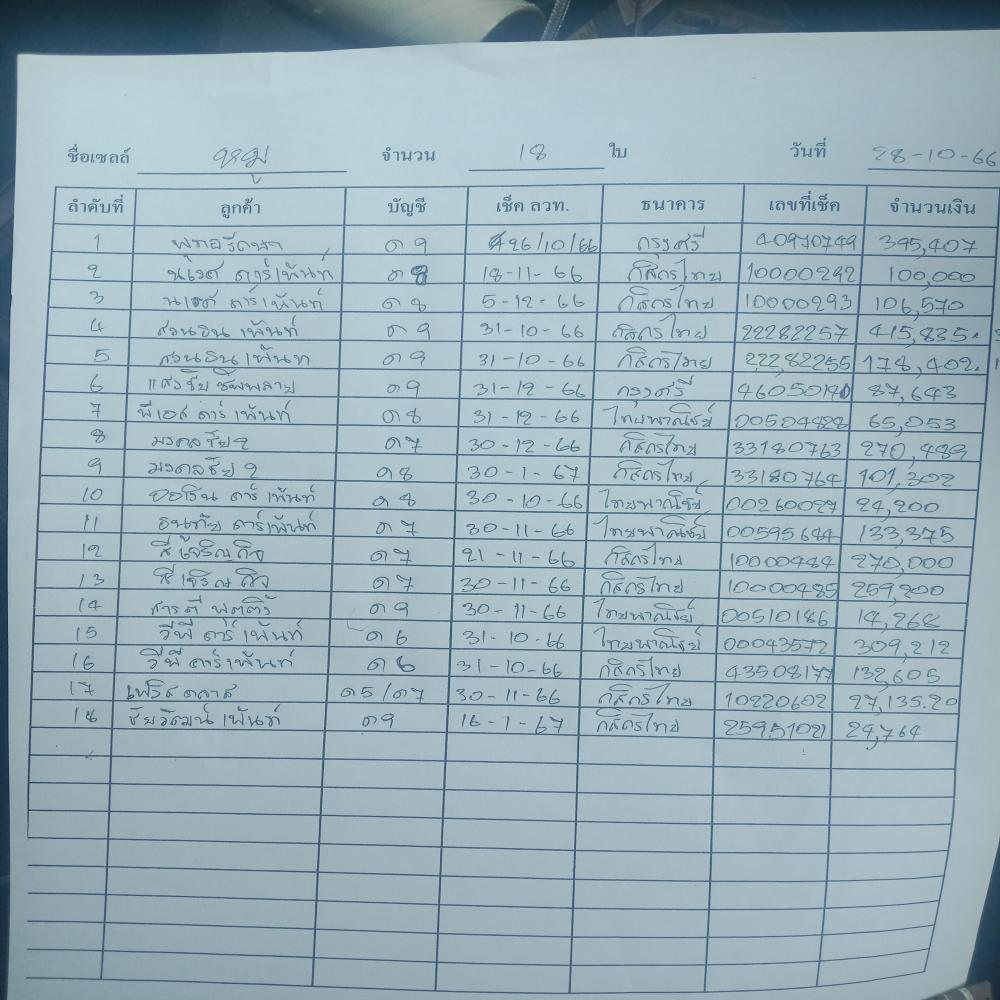 ชื่อเซลล์ หมู จำนวน 18 ใบ วันที่ 28-10-66
ลำดับที่ ลูกค้า บัญชี เช็ค ลวท. ธนาคาร เลขที่เช็ค จำนวนเงิน
1 ด9 26/10/66 กรุงศรี 40970749 395,407
2 นเรศ คาร์เพ้นท์ ด8 18-11-66 กสิกรไทย 10000292 100,000
3 นเรศ คาร์เพ้นท์ ด8 5-12-66 กสิกรไทย 10000293 106,570
4 สวนอินเพ้นท์ ด9 31-10-66 กสิกรไทย 22282257 415,835.
5 สวนอินเพ้นท ด9 31-10-66 กสิกรไทย 22282255 178,402.
6 แสงชัย ซัพพลาย ด9 31-12-66 กรุงศรี 46050140 87,643
7 พีเอส คาร์เพ้นท์ ด8 31-12-66 ไทยพาณิชย์ 00504428 65,053
8 มงคลชัย2 ด7 30-12-66 กสิกรไทย 33180763 270,489
9 มงคลชัย 2 ด8 30-1-67 กสิกรไทย 33180764 101,302
10 คาร์เพ้นท์ ด8 30-10-66 ไทยพาณิชย์ 00260027 24,200
11 ธนภัย คาร์เพ้นท์ ด7 30-11-66 ไทยพาณิชย์ 00595644 133,375
12 สี เจริญกิจ ด7 21-11-66 กสิกรไทย 10000484 270,000
13 สี เจริญกิจ ด7 30-11-66 กสิกรไทย 10000485 259,200
14 ด9 30-11-66 ไทยพาณิชย์ 00510186 14,268
15 วีพี คาร์เพ้นท์ ด6 31-10-66 ไทยพาณิชย์ 00043572 309,212
16 วีพี คาร์เพ้นท์ ด6 31-10-66 กสิกรไทย 43508177 132,605
17 เฟริสคลาส ด5/ด7 30-11-66 กสิกรไทย 10220602 27,135.20
18 ชัยวัฒน์เพ้นท์ ด9 16-1-67 กสิกรไทย 25951021 24,764